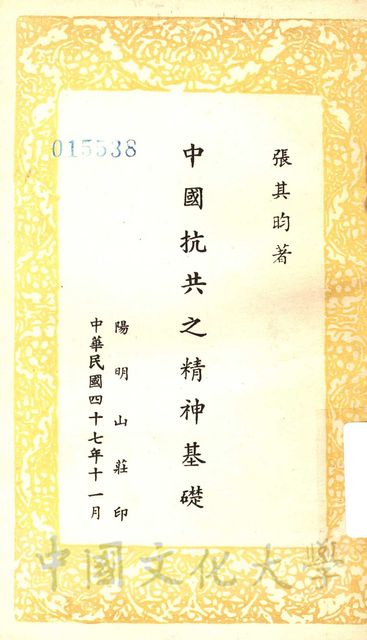 張其昀著
中國抗共之精神基礎
015538
陽明山莊印
中華民國四十七年十一月
中國文化大學